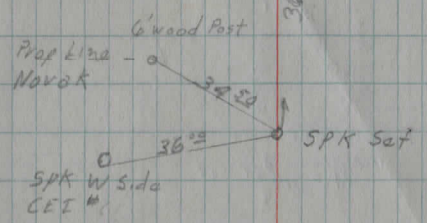 6' wood Post
Prop Line -
Novak
34 50
36 00
SPK Set
SPK W Side
CEI "